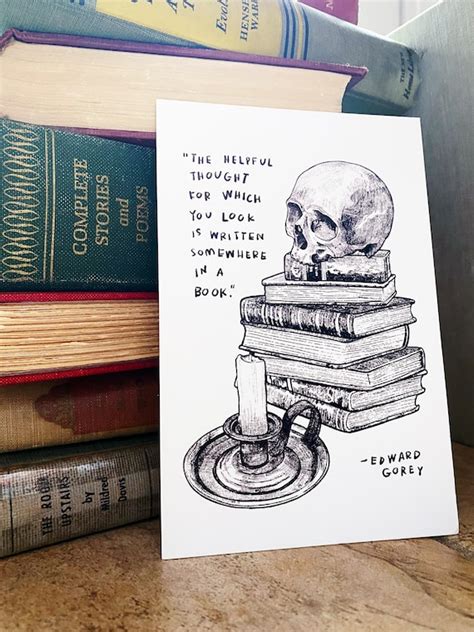 HENSE
WARR
COMPLETE
STORIES
and
POEMS
THE ROOM
UPSTAIRS
by
Mildred
Davis
"THE HELPFUL
THOUGHT
FOR WHICH
YOU LOOK
IS WRITTEN
SOMEWHERE
IN A
BOOK."
-EDWARD
GOREY